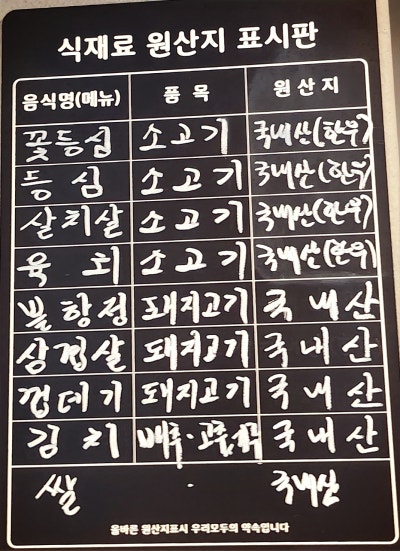 식재료 원산지 표시판
음식명(메뉴) 품 목 원 산 지
꽃등심 소고기 국내산(한우)
등심 소고기 국내산(한우)
살치살 소고기 국내산(한우)
육회 소고기 국내산(한우)
볼항정 돼지고기 국내산
삼겹살 돼지고기 국내산
껍데기 돼지고기 국내산
김치 배추·고춧가루 국내산
쌀 · 국내산
올바른 원산지표시 우리모두의 약속입니다